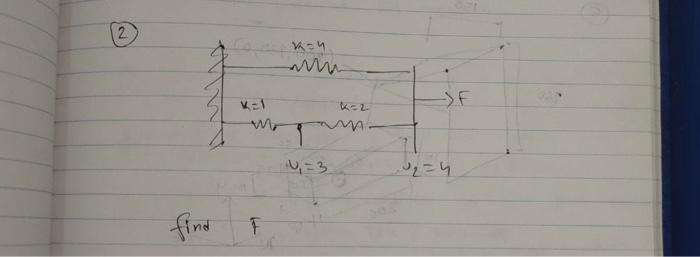 2
K=4
K=1 K=2
F
U1=3 U2=4
find F